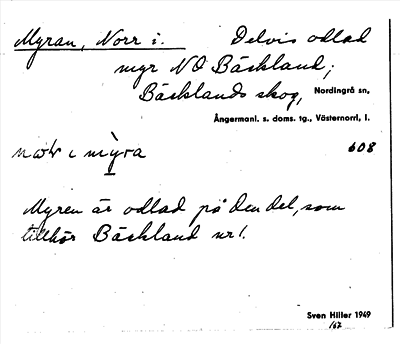 Myran, Norr i. Delvis odlad
myr NO Bäckland;
Bäcklands skog, Nordingrå sn,
Ångermanl. s. doms. tg., Västernorrl, l.
608
Myren är odlad på den del, som
tillhör Bäckland nr 1.
Sven Hiller 1949